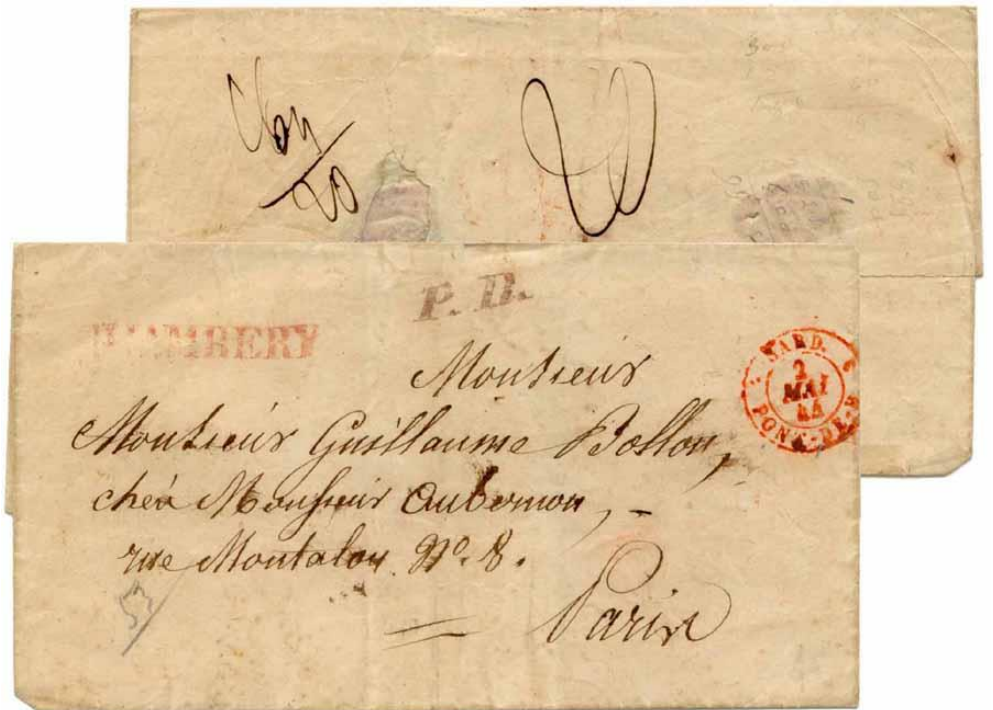 20
P. D.
CHAMBERY
SARD.
2
MAI
PONT-DE-B
Monsieur
Monsieur Guillaume Bollon,
chéz Monsieur Aubernon, -
rue Montalon Nº. 8.
53
Paris